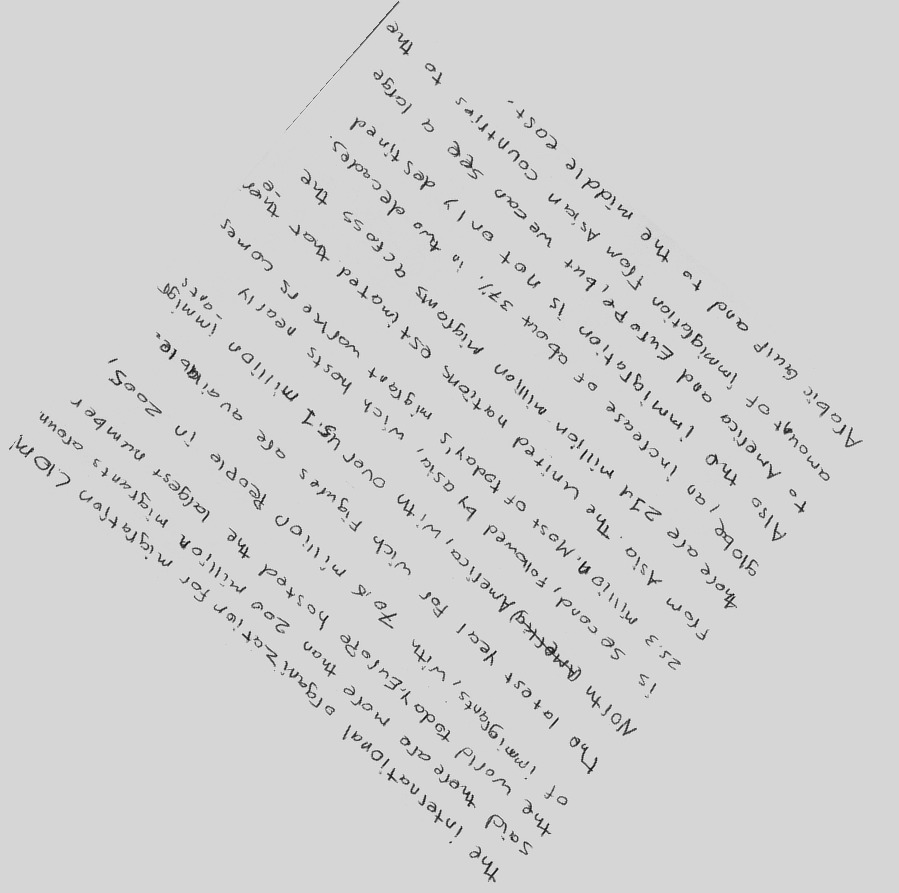 The international organization for migration (IOM)
said there are more than 200 million migrants aroun
the world today. Europe hosted the largest number
of immigrants, with 70.6 million people in 2005,
the latest year for wich figures are available.
North America, with over 45.1 million immigrants
is second, followed by asia, wich hosts nearly
25.3 million. Most of today's migrant workers comes
from Asia. The united nations estimated that ther-e
there are 214 million migrants across the
globe, an increase of about 37% in two decades.
Also the immigration is not only destined
to America and Europe, but we can see a large
amount of immigration from Asian countries to the
Arabic Gulf and to the middle east.